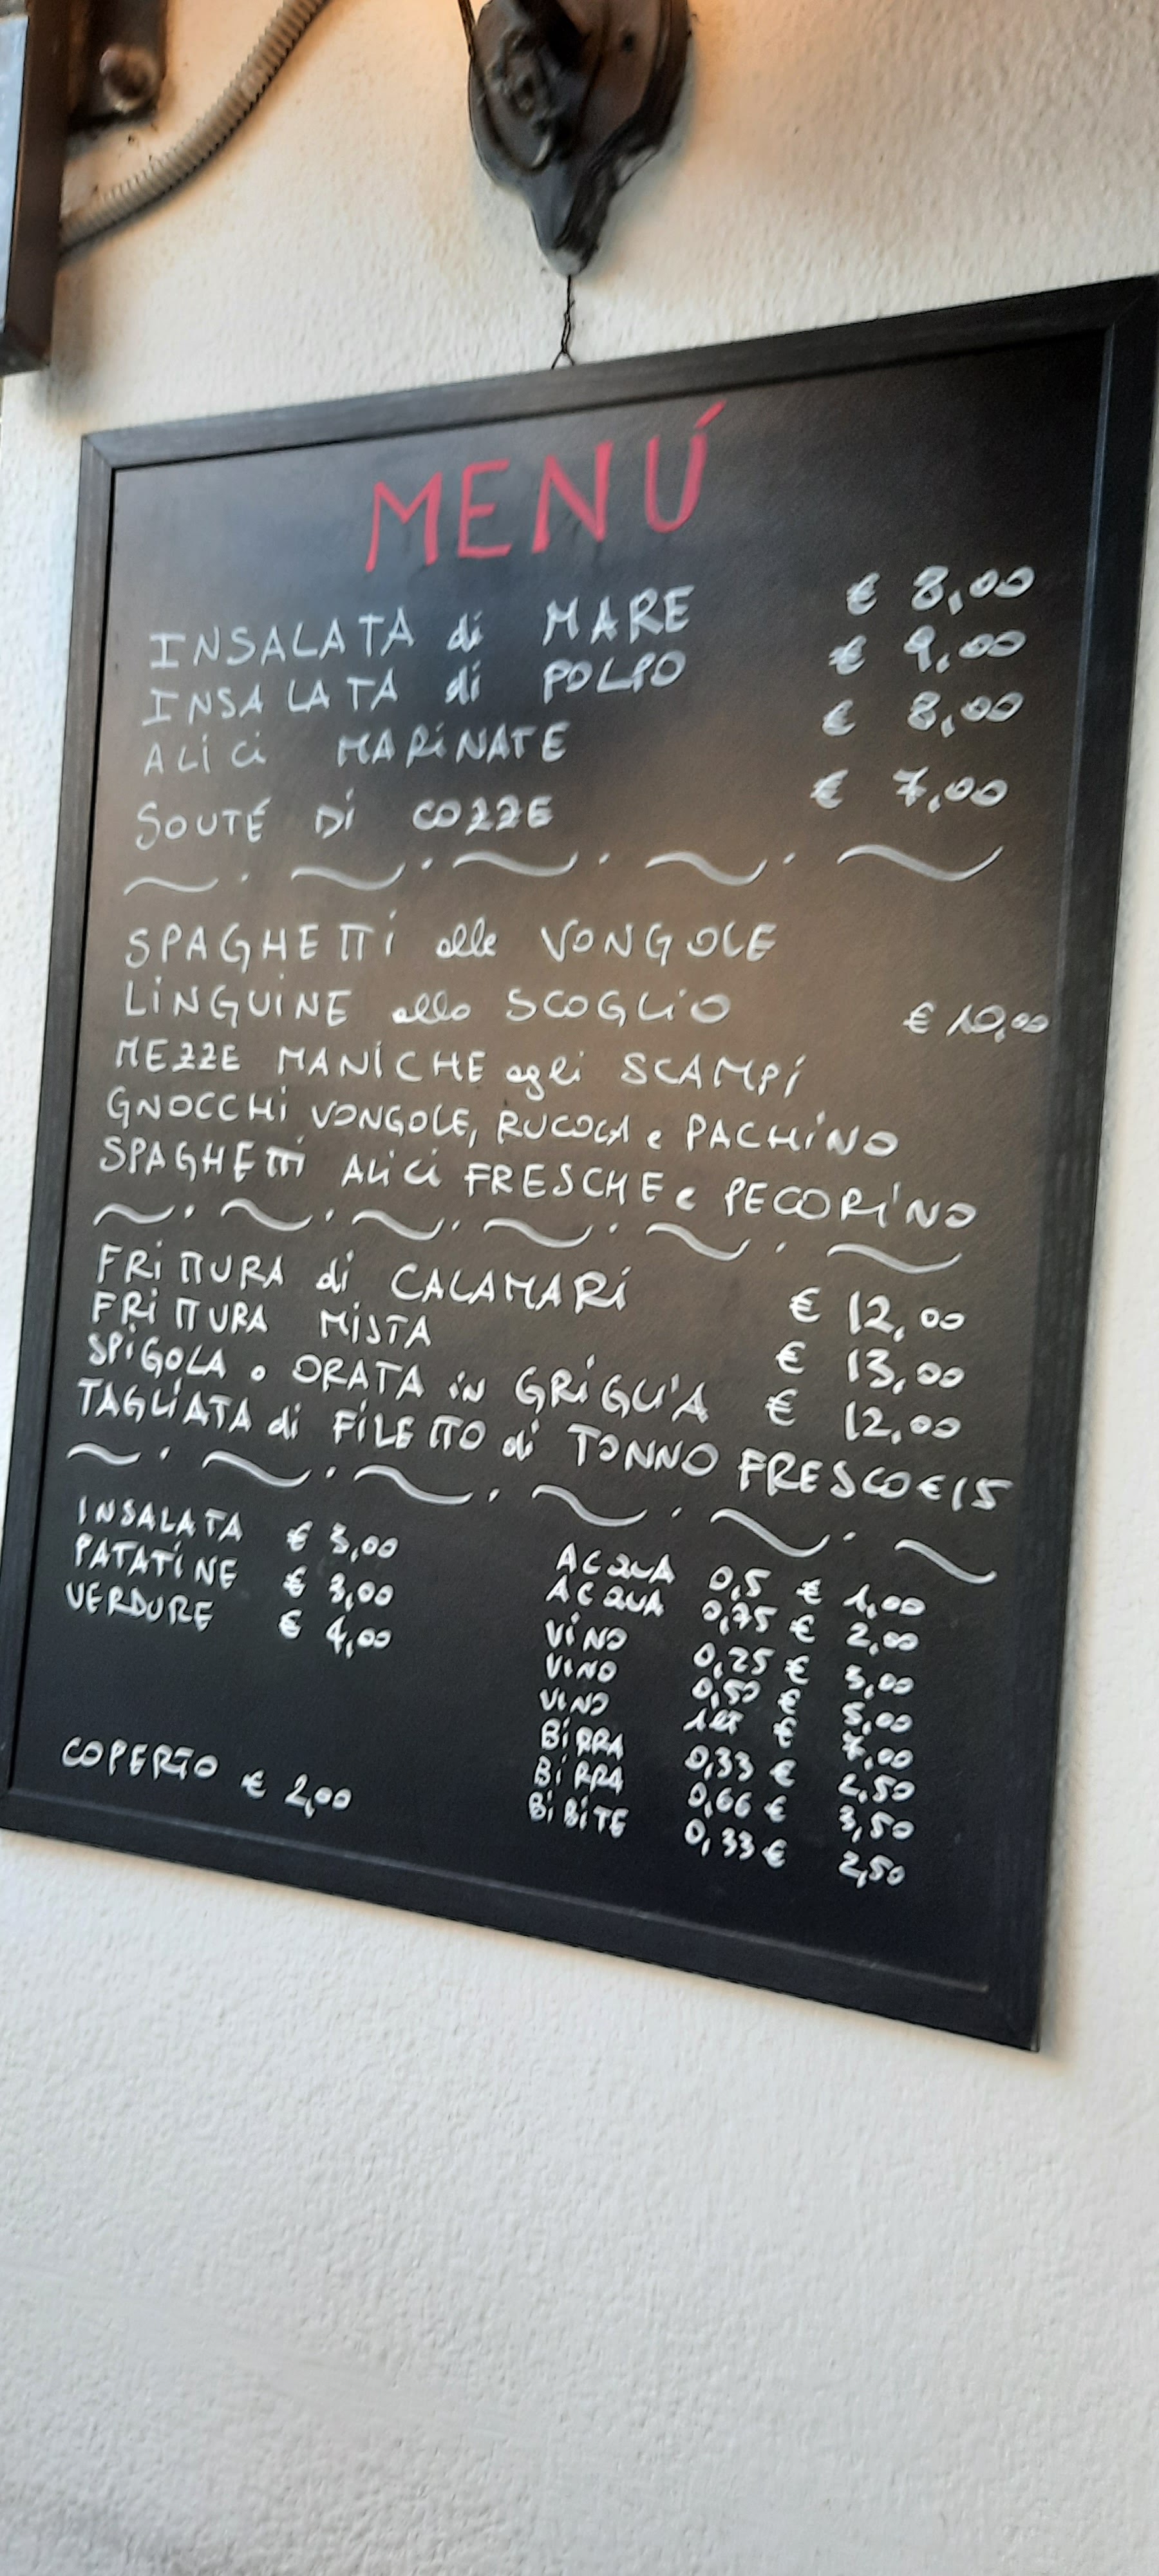 MENÚ
INSALATA di MARE € 8,00
INSALATA di POLPO € 9,00
ALICI MARINATE € 8,00
SOUTÉ DI COZZE € 7,00
SPAGHETTI alle VONGOLE
LINGUINE allo SCOGLIO € 10,00
MEZZE MANICHE agli SCAMPI
GNOCCHI VONGOLE, RUCOLA e PACHINO
SPAGHETTI ALICI FRESCHE e PECORINO
FRITTURA di CALAMARI € 12,00
FRITTURA MISTA € 13,00
SPIGOLA o ORATA IN GRIGLIA € 12,00
TAGLIATA di FILETTO di TONNO FRESCO € 15
INSALATA € 3,00
PATATINE € 3,00
VERDURE € 4,00
COPERTO € 2,00
ACQUA 0,5 € 1,00
ACQUA 0,75 € 2,00
VINO 0,25 € 3,00
VINO 0,50 € 5,00
VINO 1LT € 7,00
BIRRA 0,33 € 2,50
BIRRA 0,66 € 3,50
BIBITE 0,33 € 2,50